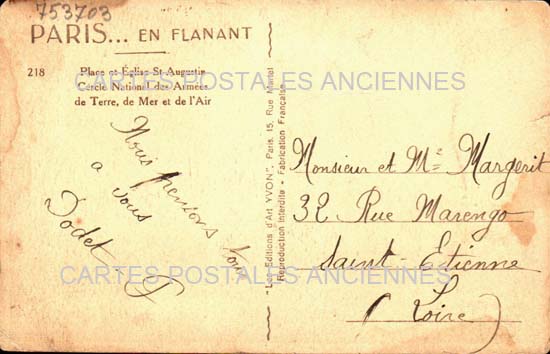 753703
PARIS... EN FLANANT
218
Place et Église St-Augustin
Cercle National des Armées
de Terre, de Mer et de l'Air
CARTES POSTALES ANCIENNES
Nous pensons
à vous
Dodet
"Les Editions d'Art YVON", Paris, 15, Rue Martel
Reproduction Interdite - Fabrication Française
Monsieur et Mᵉ Margerit
32 Rue Marengo
Saint-Etienne
(Loire)
CARTES POSTALES ANCIENNES